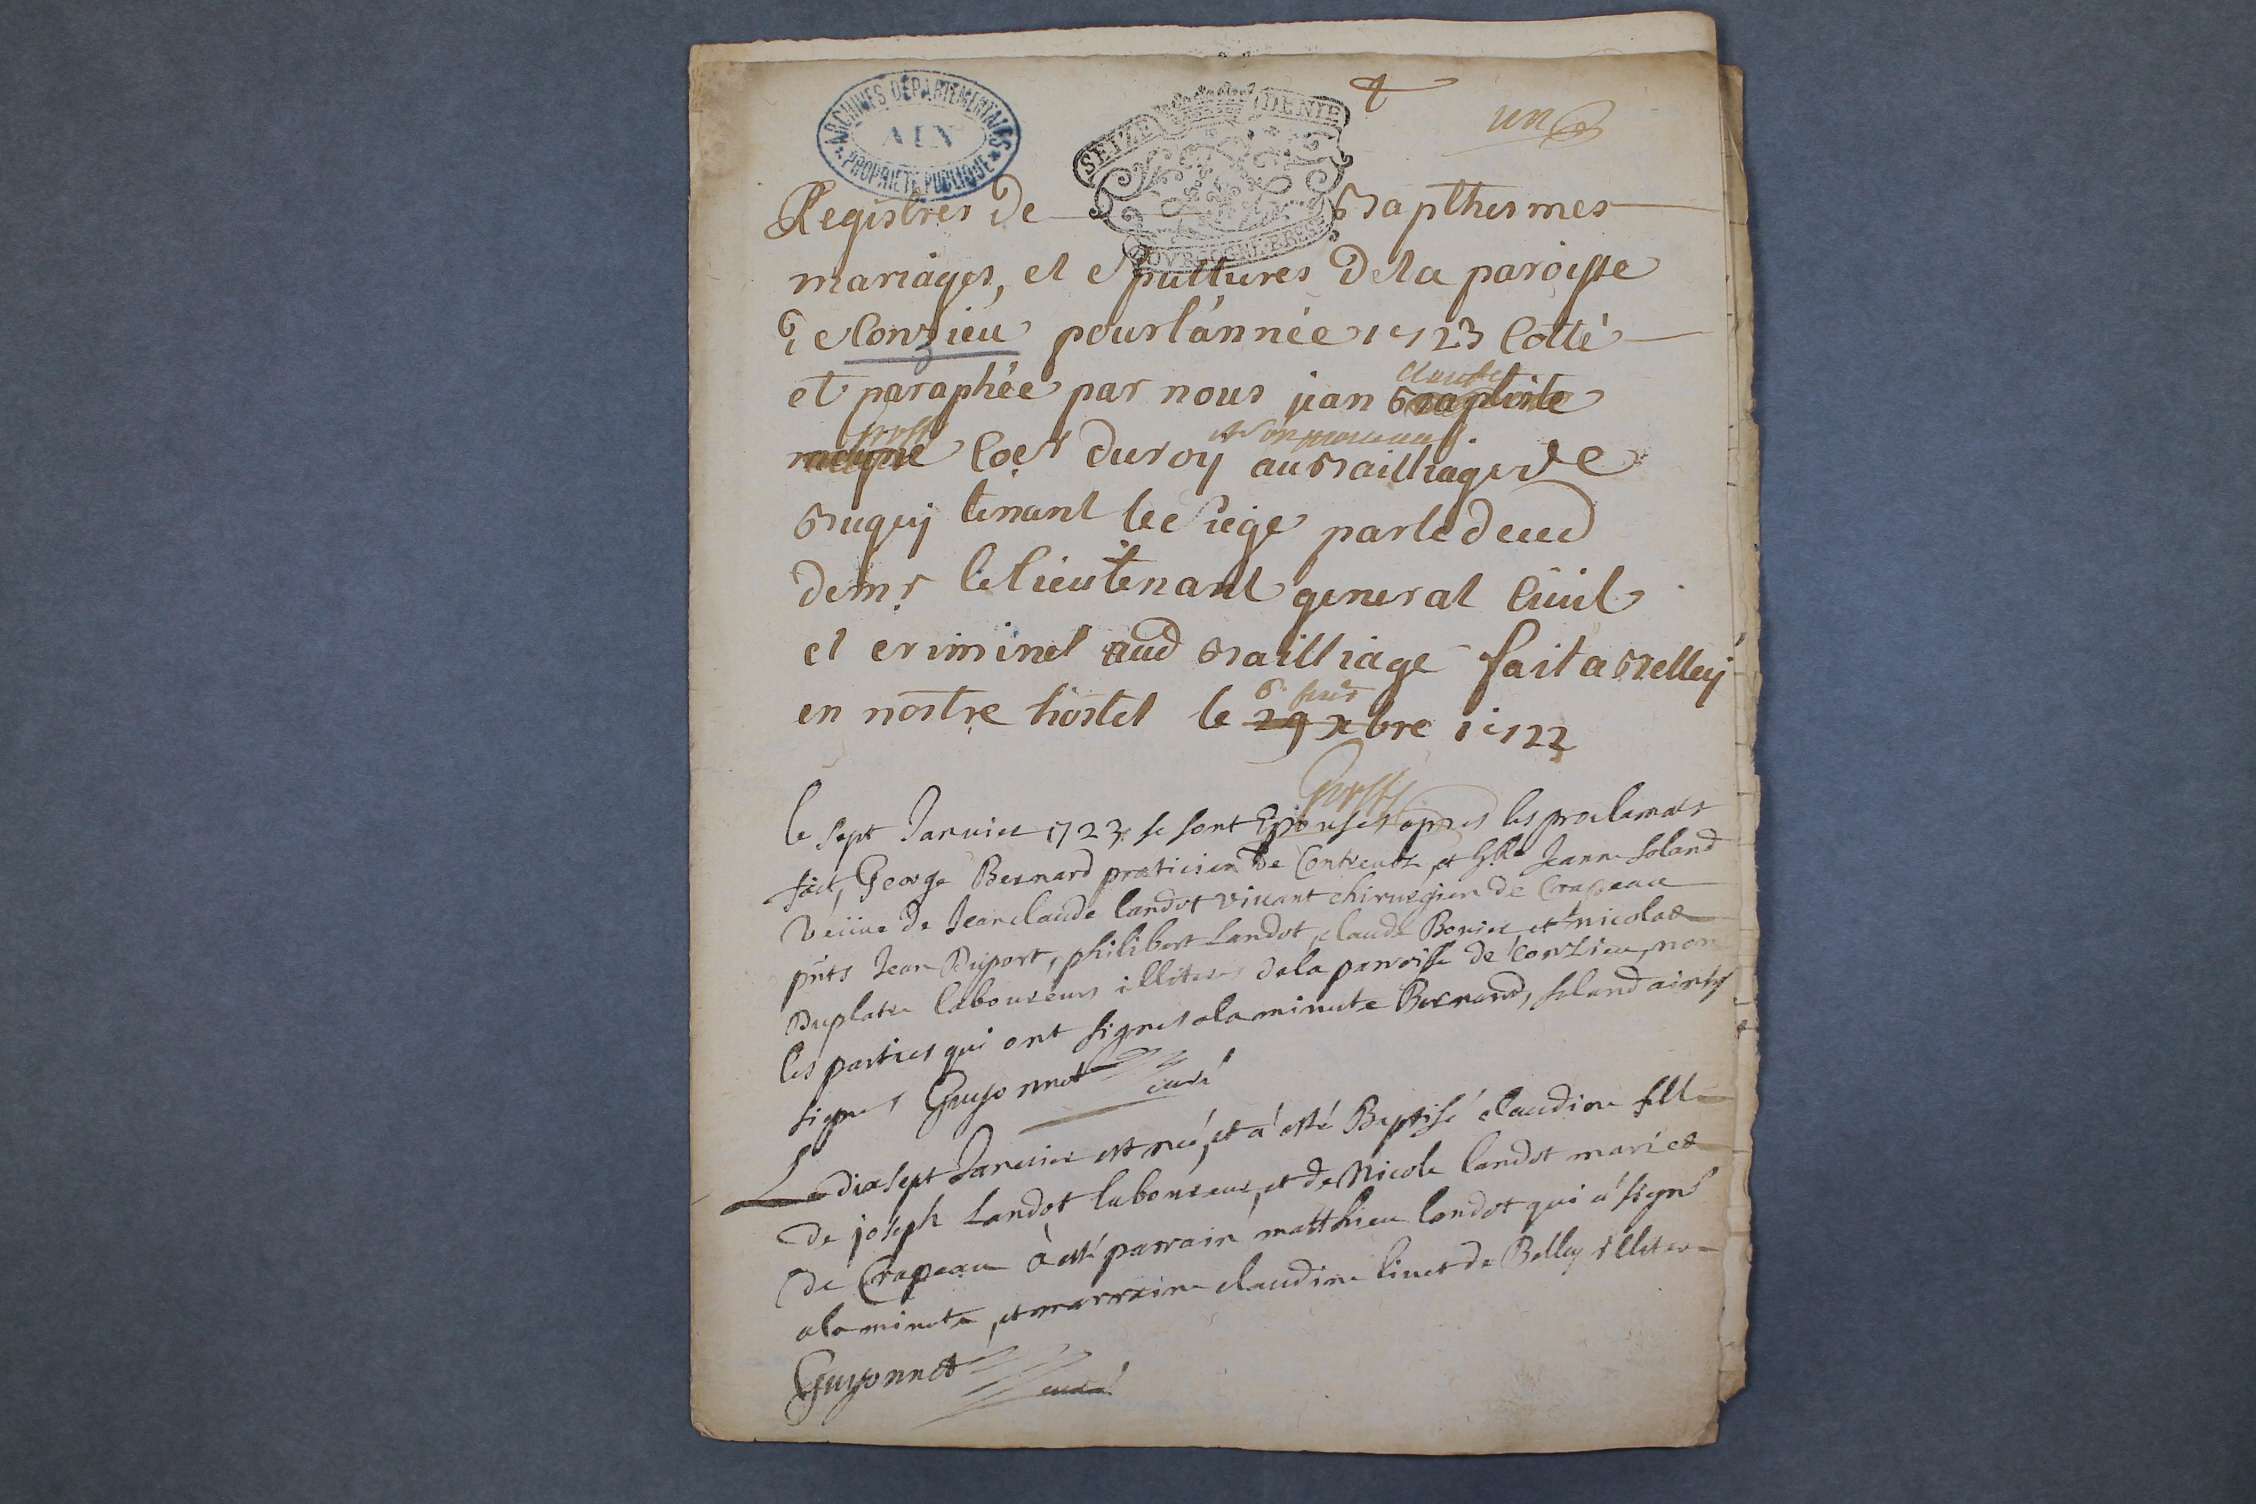 ARCHIVES DEPARTEMENTALES
AIN
PROPRIETE PUBLIQUE
SEIZE DENIE
un
Registres de Bapthesmes
BOVRGOGNE BRESSE
mariages, et Spultures De la paroisse
de Conzieu pour l'année 1723 Cotté
et paraphée par nous jean claude Baptiste
Coer du roy au Bailliage de
Bugey tenant le siege par le deced
de mr le lieutenant general Ciuil
et criminel aud Bailliage fait a Belley
en nostre hostel le 29 xbre 1722
le sept Januier 1723 se sont Epousés apres les proclamats
fait, George Bernard praticien De Contreuoz et hble Jeanne Soland
Veüue de Jean claude landot viuant chirurgien de Crapeau
pnts Jean Duport, philibert Landot, claude Bouier, et nicolas
Duplatre laboureurs illiteres de la parroisse de Conzieu, non
les parties qui ont signes a la minute Bernard, Soland ainsy
signes Guyonnet curé
Le dixsept Januier est neé, et a esté Baptisé claudine fille
de joseph Landot laboureur, et de Nicole landot mariez
de Crapeau à esté parrain matthieu landot qui a signé
a la minute, et marraine claudine liuet de Belley illitere
Guyonnet curé